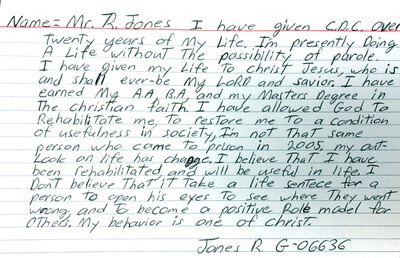 Name= Mr. R. Jones I have given C.D.C. over
Twenty years of My Life. I'm presently Doing
A Life without The possibility of parole.
I have given my Life To christ Jesus, who is
and shall ever-be My LORD and savior. I have
earned My A.A, B.A, and my Masters Degree in
The christian faith, I have allowed God to
Rehabilitate me, To restore me To a condition
of usefulness in society, I'm not That same
person who came to prison in 2005, my out-
Look on life has change. I believe That I have
been rehabilitated, and will be useful in life. I
Don't believe That it take a life sentece for a
person to open his eyes To see where They went
wrong, and To become a positive Role model for
others. My behavior is one of christ.
Jones R. G-06636